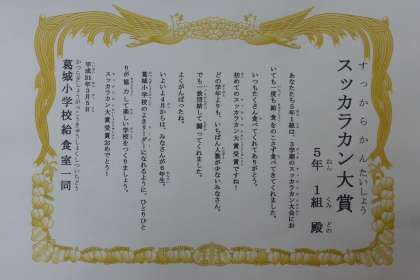 すっからかんたいしょう
スッカラカン大賞
５年　１組　殿
ねん　くみ　どの
あなたたち５年１組は、３学期のスッカラカン大会にお
いても一度も給食をのこさず食べてきてくれました。
いつもたくさん食べてくれてありがとう。
初めてのスッカラカン大賞受賞ですね！
どの学年よりも、いちばん人数が少ないみなさん。
でも一致団結して頑ってくれました。
よくがんばったね。
いよいよ４月からは、みなさんが６年生。
葛城小学校のよきリーダーになれるように、ひとりひと
りが協力して楽しい学校をつくりましょう。
スッカラカン大賞受賞おめでとう！
平成31年３月５日
かつらぎしょうがっこうきゅうしょくしついちどう
葛城小学校給食室一同